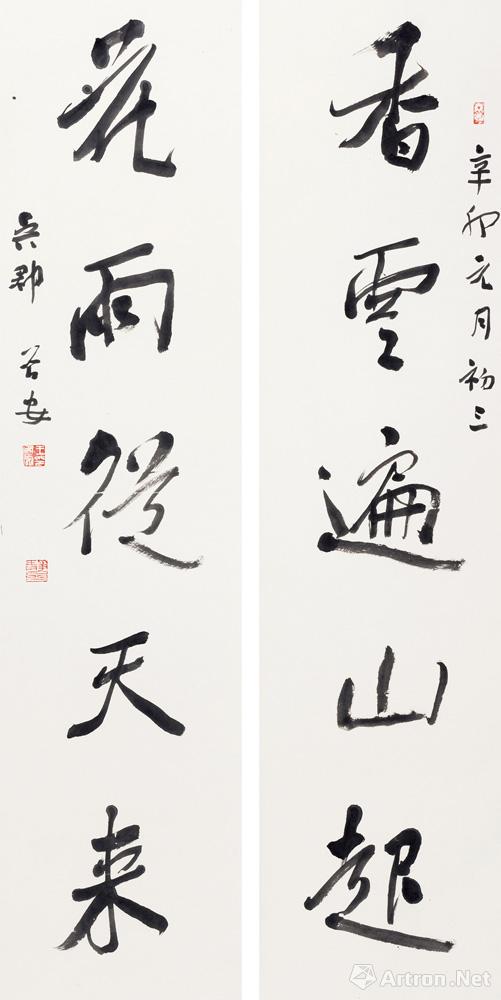 辛卯元月初三
香雲遍山起
花雨從天來
吳郡
Artron.Net